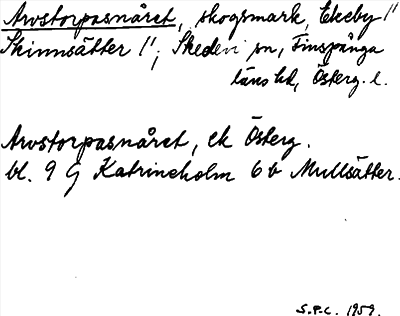 Arvstorpasnåret, skogsmark, Ekeby 1/1
Skinnsätter 1/1, Skedevi sn, Finspånga
läns hd, Österg. l.
Arvstorpasnåret, ek Österg.
bl. 9 G Katrineholm 6 b Mullsätter.
S.P.C. 1959.